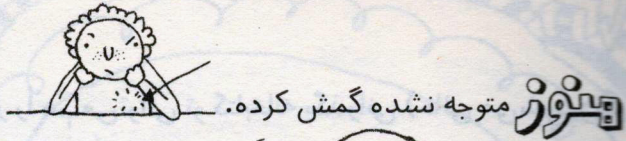 هنوز متوجه نشده گمش کرده.